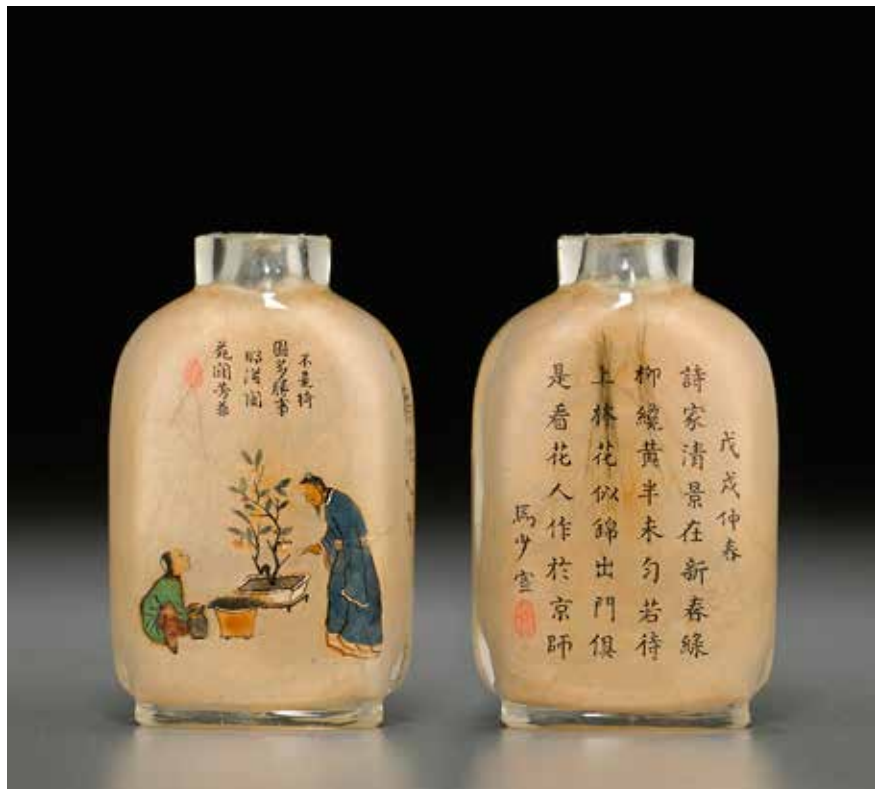 不是綺
園多勝事
苑
戊戌仲春
詩家清景在新春綠
柳纔黃半未勻若待
上林花似錦出門俱
是看花人作於京師
馬少宣